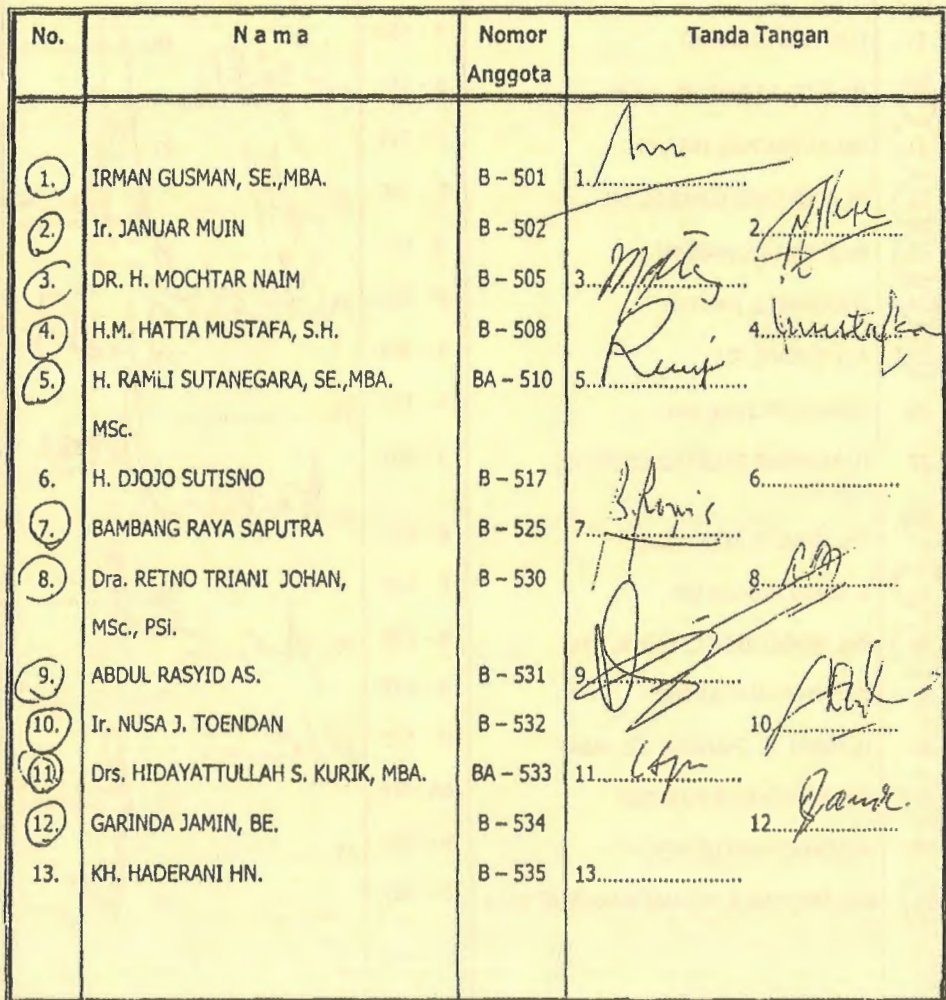 No. Nama Nomor Anggota Tanda Tangan
1. IRMAN GUSMAN, SE.,MBA. B – 501 1.
2. Ir. JANUAR MUIN B – 502 2.
3. DR. H. MOCHTAR NAIM B – 505 3.
4. H.M. HATTA MUSTAFA, S.H. B – 508 4.
5. H. RAMLI SUTANEGARA, SE.,MBA. BA – 510 5.
MSc.
6. H. DJOJO SUTISNO B – 517 6.
7. BAMBANG RAYA SAPUTRA B – 525 7.
8. Dra. RETNO TRIANI JOHAN, B – 530 8.
MSc., PSi.
9. ABDUL RASYID AS. B – 531 9.
10. Ir. NUSA J. TOENDAN B – 532 10.
11. Drs. HIDAYATTULLAH S. KURIK, MBA. BA – 533 11.
12. GARINDA JAMIN, BE. B – 534 12.
13. KH. HADERANI HN. B – 535 13.